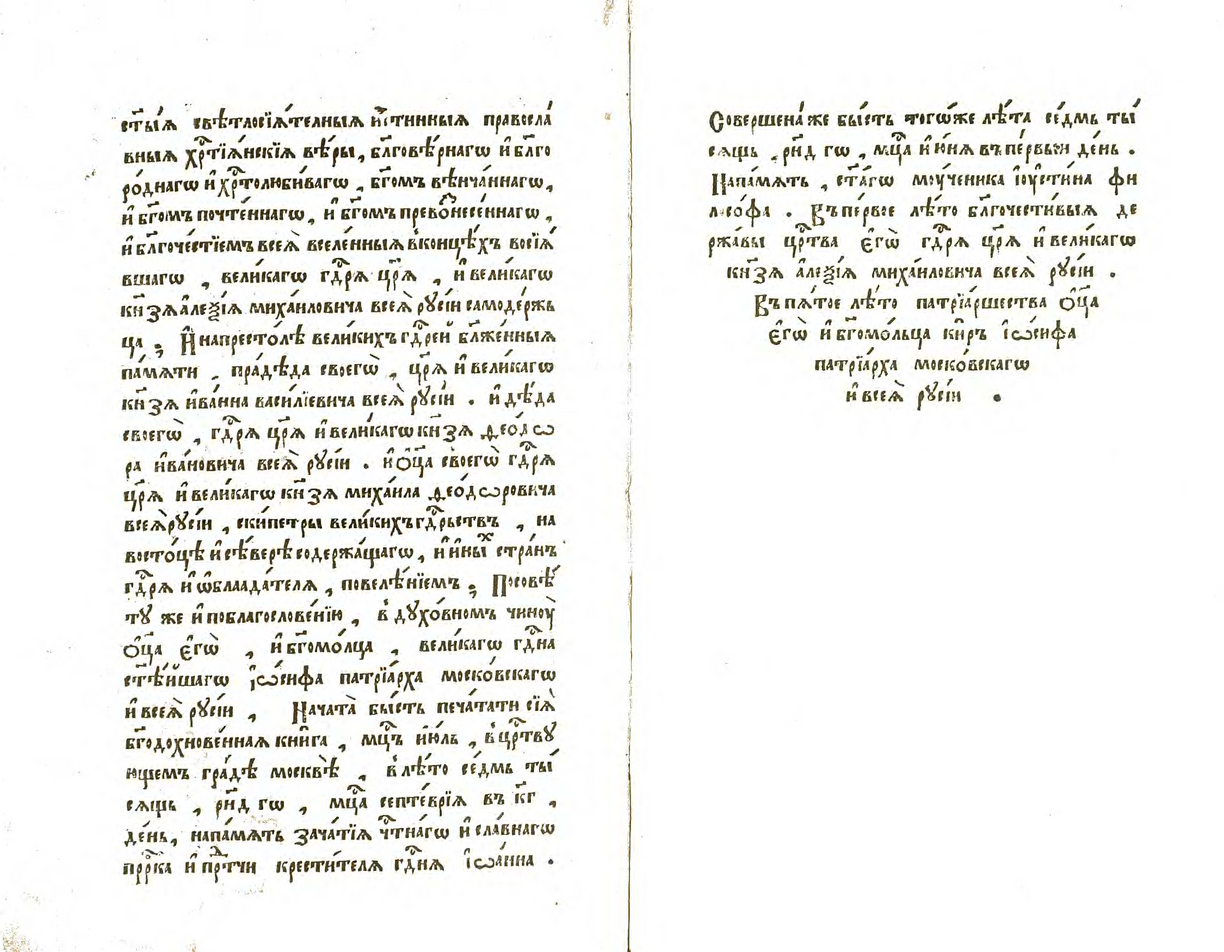 ст҃ы́ѧ свѣтлосїѧ́телныѧ и҆́стинныѧ правосла́
вныѧ хрⷭ҇тїѧ́нскїѧ вѣ́ры, бл҃говѣ́рнагѡ и҆ бл҃го
ро́днагѡ и҆ хрⷭ҇толюби́вагѡ , бг҃омъ вѣнча́ннагѡ,
и҆ бг҃омъ почте́ннагѡ, и҆ бг҃омъ превоⷥнесе́ннагѡ ,
и҆ бл҃гоче́стїемъ всеѧ̀ вселе́нныѧ в̾конца́хъ восїѧ́
вшагѡ , вели́кагѡ гдⷭ҇рѧ цр҃ѧ̀ , и҆ вели́кагѡ
кн҃зѧ а҆леѯі́ѧ миха́иловича всеѧ̀ рꙋсі́и самоде́ржь
ца . И҆ напресто́лѣ вели́кихъ гдⷭ҇рей бл҃же́нныѧ
па́мѧти . пра́дѣда своегѡ̀ , цр҃ѧ̀ и҆ вели́кагѡ
кн҃зѧ и҆ва́нна васи́лїевича всеѧ̀ рꙋсі́и . и҆ дѣ́да
своегѡ̀ , гдⷭ҇рѧ цр҃ѧ̀ и҆ вели́кагѡ кн҃зѧ ѳео́дѡ
ра и҆ва́новича всеѧ̀ рꙋсі́и . и҆ ѻ҆ц҃а̀ своегѡ̀ гдⷭ҇рѧ
цр҃ѧ̀ и҆ вели́кагѡ кн҃зѧ миха́ила ѳео́дѡровича
всеѧ̀ рꙋсі́и , ски́петры вели́кихъ гдⷭ҇рьствъ , на
восто́цѣ и҆ сѣ́верѣ содержа́щагѡ, и҆ и҆ны́ⷯ стра́нъ
гдⷭ҇рѧ и҆ ѡ҆блаада́телѧ , повелѣ́нїемъ . Посовѣ́
тꙋ же и҆ поблагослове́нїю , в̾ дꙋхо́вномъ чиноу̀
ѻ҆ц҃а̀ є҆гѡ̀ , и҆ бг҃омо́лца , вели́кагѡ гдⷭ҇на
ст҃ѣ́йшагѡ і҆ѡ́сифа патрїа́рха моско́вскагѡ
и҆ всеѧ̀ рꙋсі́и , Нача́та бы́сть печа́тати сїѧ̀
бг҃одохнове́ннаѧ кни́га , мцⷭ҇ъ и҆ю́ль , в̾ црⷭ҇твꙋ
ющемъ гра́дѣ москвѣ̀ , в̾ лѣ́то се́дмь ты́
сѧщь , рн҃д гѡ , мцⷭ҇а септе́врїѧ въ к҃г ,
де́нь, напа́мѧть зача́тїѧ чⷭ҇тна́гѡ и҆ сла́внагѡ
прⷪ҇рка и҆ прⷣтчи крести́телѧ гдⷭ҇нѧ і҆ѡа́нна .
Соверше́на же бы́сть тогѡ́же лѣ́та се́дмь ты́
сѧщь , рн҃д гѡ , мцⷭ҇а и҆ю́нѧ въ пе́рвыи де́нь .
Напа́мѧть , ст҃а́гѡ моу́ченика і҆оусти́на фи
лосо́фа . Въ пе́рвое лѣ́то бл҃гочести́выѧ де
ржа́вы црⷭ҇тва є҆гѡ̀ гдⷭ҇рѧ цр҃ѧ̀ и҆ вели́кагѡ
кн҃зѧ а҆леѯі́ѧ миха́иловича всеѧ̀ рꙋсі́и .
Въ пѧ́тое лѣ́то патрїа́ршества ѻ҆ц҃а̀
є҆гѡ̀ и҆ бг҃омо́льца ки́ръ і҆ѡ́сифа
патрїа́рха моско́вскагѡ
и҆ всеѧ̀ рꙋсі́и .